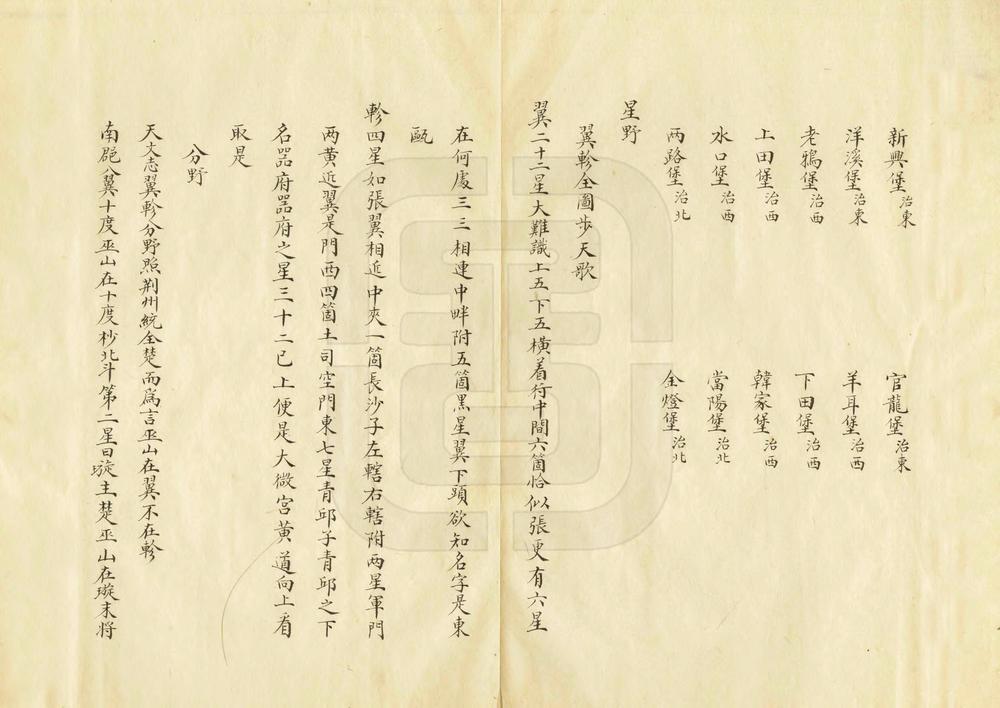 新興堡治東　官龍堡治東
洋溪堡治東　羊耳堡治西
老鴉堡治西　下田堡治西
上田堡治西　韓家堡治西
水口堡治西　當陽堡治北
两路堡治北　金燈堡治北
星野
翼軫全圖步天歌
翼二十二星大難識上五下五橫着行中間六箇恰似張更有六星
在何處三三相連中畔附五箇黑星翼下頭欲知名字是東
甌
軫四星如張翼相近中夾一箇長沙子左轄右轄附两星軍門
两黄近翼是門西四箇土司空門東七星青邱子青邱之下
名噐府噐府之星三十二已上便是大微宮黄道向上看
取是
分野
天文志翼軫分野照荆州統全楚而爲言巫山在翼不在軫
南郡入翼十度巫山在十度杪北斗第二星曰璇主楚巫山在璇末將